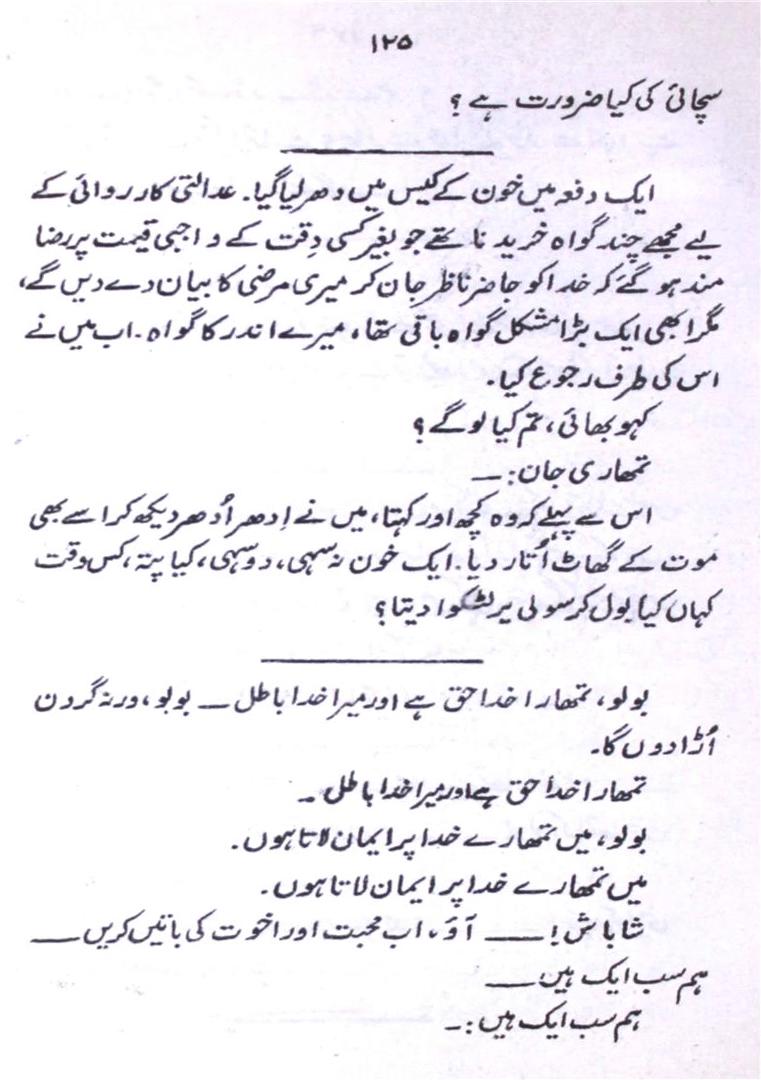 ۱۲۵
سچائی کی کیا ضرورت ہے ؟
ایک دفعہ میں خون کے کیس میں دھر لیا گیا۔ عدالتی کارروائی کے
لیے مجھے چند گواہ خریدنا تھے جو بغیر کسی دِقت کے واجبی قیمت پر رضا
مند ہو گئے کہ خدا کو حاضر ناظر جان کر میری مرضی کا بیان دے دیں گے،
مگر ابھی ایک بڑا مشکل گواہ باقی تھا، میرے اندر کا گواہ۔ اب میں نے
اس کی طرف رجوع کیا۔
کہو بھائی، تم کیا لوگے ؟
تمھاری جان:۔
اس سے پہلے کہ وہ کچھ اور کہتا، میں نے اِدھر اُدھر دیکھ کر اسے بھی
موت کے گھاٹ اُتار دیا۔ ایک خون نہ سہی، دو سہی، کیا پتہ، کس وقت
کہاں کیا بول کر سولی پر لٹکوا دیتا؟
بولو، تمھارا خدا حق ہے اور میرا خدا باطل — بوبو، ورنہ گردن
اُڑا دوں گا۔
تمھارا خدا حق ہے اور میرا خدا باطل ۔
بولو، میں تمھارے خدا پر ایمان لاتا ہوں۔
میں تمھارے خدا پر ایمان لاتا ہوں۔
شاباش! — آؤ، اب محبت اور اخوت کی باتیں کریں —
ہم سب ایک ہین —
ہم سب ایک ہیں :۔